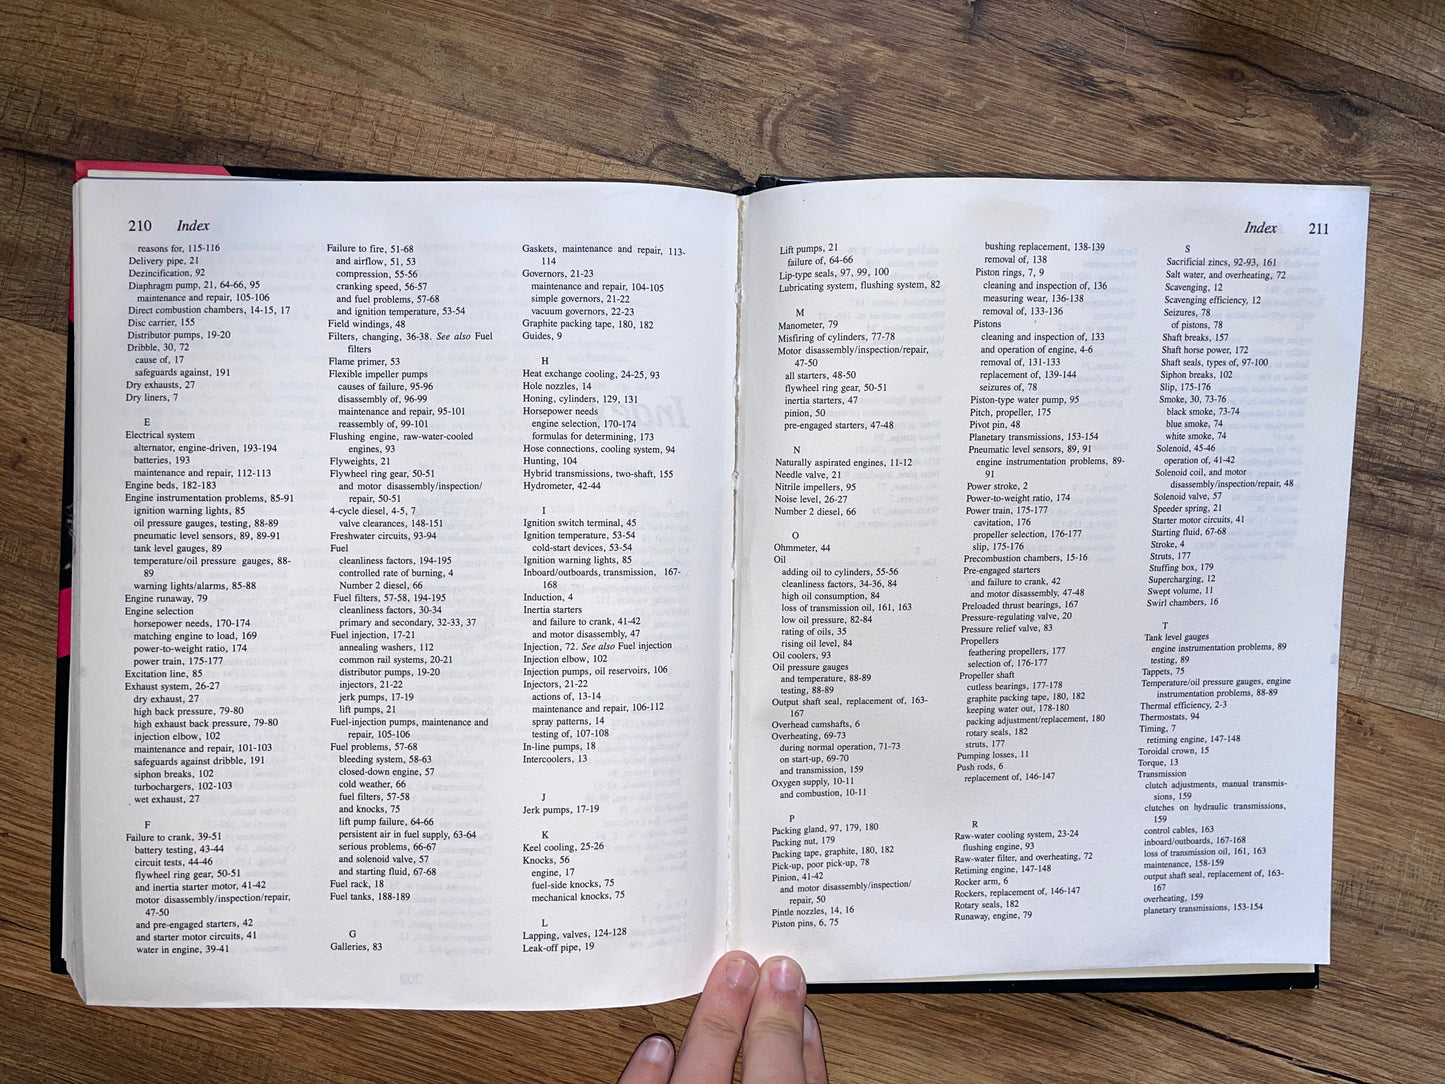 210 Index
reasons for, 115-116
Delivery pipe, 21
Dezincification, 92
Diaphragm pump, 21, 64-66, 95
maintenance and repair, 105-106
Direct combustion chambers, 14-15, 17
Disc carrier, 155
Distributor pumps, 19-20
Dribble, 30, 72
cause of, 17
safeguards against, 191
Dry exhausts, 27
Dry liners, 7
E
Electrical system
alternator, engine-driven, 193-194
batteries, 193
maintenance and repair, 112-113
Engine beds, 182-183
Engine instrumentation problems, 85-91
ignition warning lights, 85
oil pressure gauges, testing, 88-89
pneumatic level sensors, 89, 89-91
tank level gauges, 89
temperature/oil pressure gauges, 88-
89
warning lights/alarms, 85-88
Engine runaway, 79
Engine selection
horsepower needs, 170-174
matching engine to load, 169
power-to-weight ratio, 174
power train, 175-177
Excitation line, 85
Exhaust system, 26-27
dry exhaust, 27
high back pressure, 79-80
high exhaust back pressure, 79-80
injection elbow, 102
maintenance and repair, 101-103
safeguards against dribble, 191
siphon breaks, 102
turbochargers, 102-103
wet exhaust, 27
F
Failure to crank, 39-51
battery testing, 43-44
circuit tests, 44-46
flywheel ring gear, 50-51
and inertia starter motor, 41-42
motor disassembly/inspection/repair,
47-50
and pre-engaged starters, 42
and starter motor circuits, 41
water in engine, 39-41
Failure to fire, 51-68
and airflow, 51, 53
compression, 55-56
cranking speed, 56-57
and fuel problems, 57-68
and ignition temperature, 53-54
Field windings, 48
Filters, changing, 36-38. See also Fuel
filters
Flame primer, 53
Flexible impeller pumps
causes of failure, 95-96
disassembly of, 96-99
maintenance and repair, 95-101
reassembly of, 99-101
Flushing engine, raw-water-cooled
engines, 93
Flyweights, 21
Flywheel ring gear, 50-51
and motor disassembly/inspection/
repair, 50-51
4-cycle diesel, 4-5, 7
valve clearances, 148-151
Freshwater circuits, 93-94
Fuel
cleanliness factors, 194-195
controlled rate of burning, 4
Number 2 diesel, 66
Fuel filters, 57-58, 194-195
cleanliness factors, 30-34
primary and secondary, 32-33, 37
Fuel injection, 17-21
annealing washers, 112
common rail systems, 20-21
distributor pumps, 19-20
injectors, 21-22
jerk pumps, 17-19
lift pumps, 21
Fuel-injection pumps, maintenance and
repair, 105-106
Fuel problems, 57-68
bleeding system, 58-63
closed-down engine, 57
cold weather, 66
fuel filters, 57-58
and knocks, 75
lift pump failure, 64-66
persistent air in fuel supply, 63-64
serious problems, 66-67
and solenoid valve, 57
and starting fluid, 67-68
Fuel rack, 18
Fuel tanks, 188-189
G
Galleries, 83
Gaskets, maintenance and repair, 113-
114
Governors, 21-23
maintenance and repair, 104-105
simple governors, 21-22
vacuum governors, 22-23
Graphite packing tape, 180, 182
Guides, 9
H
Heat exchange cooling, 24-25, 93
Hole nozzles, 14
Honing, cylinders, 129, 131
Horsepower needs
engine selection, 170-174
formulas for determining, 173
Hose connections, cooling system, 94
Hunting, 104
Hybrid transmissions, two-shaft, 155
Hydrometer, 42-44
I
Ignition switch terminal, 45
Ignition temperature, 53-54
cold-start devices, 53-54
Ignition warning lights, 85
Inboard/outboards, transmission, 167-
168
Induction, 4
Inertia starters
and failure to crank, 41-42
and motor disassembly, 47
Injection, 72. See also Fuel injection
Injection elbow, 102
Injection pumps, oil reservoirs, 106
Injectors, 21-22
actions of, 13-14
maintenance and repair, 106-112
spray patterns, 14
testing of, 107-108
In-line pumps, 18
Intercoolers, 13
J
Jerk pumps, 17-19
K
Keel cooling, 25-26
Knocks, 56
engine, 17
fuel-side knocks, 75
mechanical knocks, 75
L
Lapping, valves, 124-128
Leak-off pipe, 19
Index 211
Lift pumps, 21
failure of, 64-66
Lip-type seals, 97, 99, 100
Lubricating system, flushing system, 82
M
Manometer, 79
Misfiring of cylinders, 77-78
Motor disassembly/inspection/repair,
47-50
all starters, 48-50
flywheel ring gear, 50-51
inertia starters, 47
pinion, 50
pre-engaged starters, 47-48
N
Naturally aspirated engines, 11-12
Needle valve, 21
Nitrile impellers, 95
Noise level, 26-27
Number 2 diesel, 66
O
Ohmmeter, 44
Oil
adding oil to cylinders, 55-56
cleanliness factors, 34-36, 84
high oil consumption, 84
loss of transmission oil, 161, 163
low oil pressure, 82-84
rating of oils, 35
rising oil level, 84
Oil coolers, 93
Oil pressure gauges
and temperature, 88-89
testing, 88-89
Output shaft seal, replacement of, 163-
167
Overhead camshafts, 6
Overheating, 69-73
during normal operation, 71-73
on start-up, 69-70
and transmission, 159
Oxygen supply, 10-11
and combustion, 10-11
P
Packing gland, 97, 179, 180
Packing nut, 179
Packing tape, graphite, 180, 182
Pick-up, poor pick-up, 78
Pinion, 41-42
and motor disassembly/inspection/
repair, 50
Pintle nozzles, 14, 16
Piston pins, 6, 75
bushing replacement, 138-139
removal of, 138
Piston rings, 7, 9
cleaning and inspection of, 136
measuring wear, 136-138
removal of, 133-136
Pistons
cleaning and inspection of, 133
and operation of engine, 4-6
removal of, 131-133
replacement of, 139-144
seizures of, 78
Piston-type water pump, 95
Pitch, propeller, 175
Pivot pin, 48
Planetary transmissions, 153-154
Pneumatic level sensors, 89, 91
engine instrumentation problems, 89-
91
Power stroke, 2
Power-to-weight ratio, 174
Power train, 175-177
cavitation, 176
propeller selection, 176-177
slip, 175-176
Precombustion chambers, 15-16
Pre-engaged starters
and failure to crank, 42
and motor disassembly, 47-48
Preloaded thrust bearings, 167
Pressure-regulating valve, 20
Pressure relief valve, 83
Propellers
feathering propellers, 177
selection of, 176-177
Propeller shaft
cutless bearings, 177-178
graphite packing tape, 180, 182
keeping water out, 178-180
packing adjustment/replacement, 180
rotary seals, 182
struts, 177
Pumping losses, 11
Push rods, 6
replacement of, 146-147
R
Raw-water cooling system, 23-24
flushing engine, 93
Raw-water filter, and overheating, 72
Retiming engine, 147-148
Rocker arm, 6
Rockers, replacement of, 146-147
Rotary seals, 182
Runaway, engine, 79
S
Sacrificial zincs, 92-93, 161
Salt water, and overheating, 72
Scavenging, 12
Scavenging efficiency, 12
Seizures, 78
of pistons, 78
Shaft breaks, 157
Shaft horse power, 172
Shaft seals, types of, 97-100
Siphon breaks, 102
Slip, 175-176
Smoke, 30, 73-76
black smoke, 73-74
blue smoke, 74
white smoke, 74
Solenoid, 45-46
operation of, 41-42
Solenoid coil, and motor
disassembly/inspection/repair, 48
Solenoid valve, 57
Speeder spring, 21
Starter motor circuits, 41
Starting fluid, 67-68
Stroke, 4
Struts, 177
Stuffing box, 179
Supercharging, 12
Swept volume, 11
Swirl chambers, 16
T
Tank level gauges
engine instrumentation problems, 89
testing, 89
Tappets, 75
Temperature/oil pressure gauges, engine
instrumentation problems, 88-89
Thermal efficiency, 2-3
Thermostats, 94
Timing, 7
retiming engine, 147-148
Toroidal crown, 15
Torque, 13
Transmission
clutch adjustments, manual transmis-
sions, 159
clutches on hydraulic transmissions,
159
control cables, 163
inboard/outboards, 167-168
loss of transmission oil, 161, 163
maintenance, 158-159
output shaft seal, replacement of, 163-
167
overheating, 159
planetary transmissions, 153-154